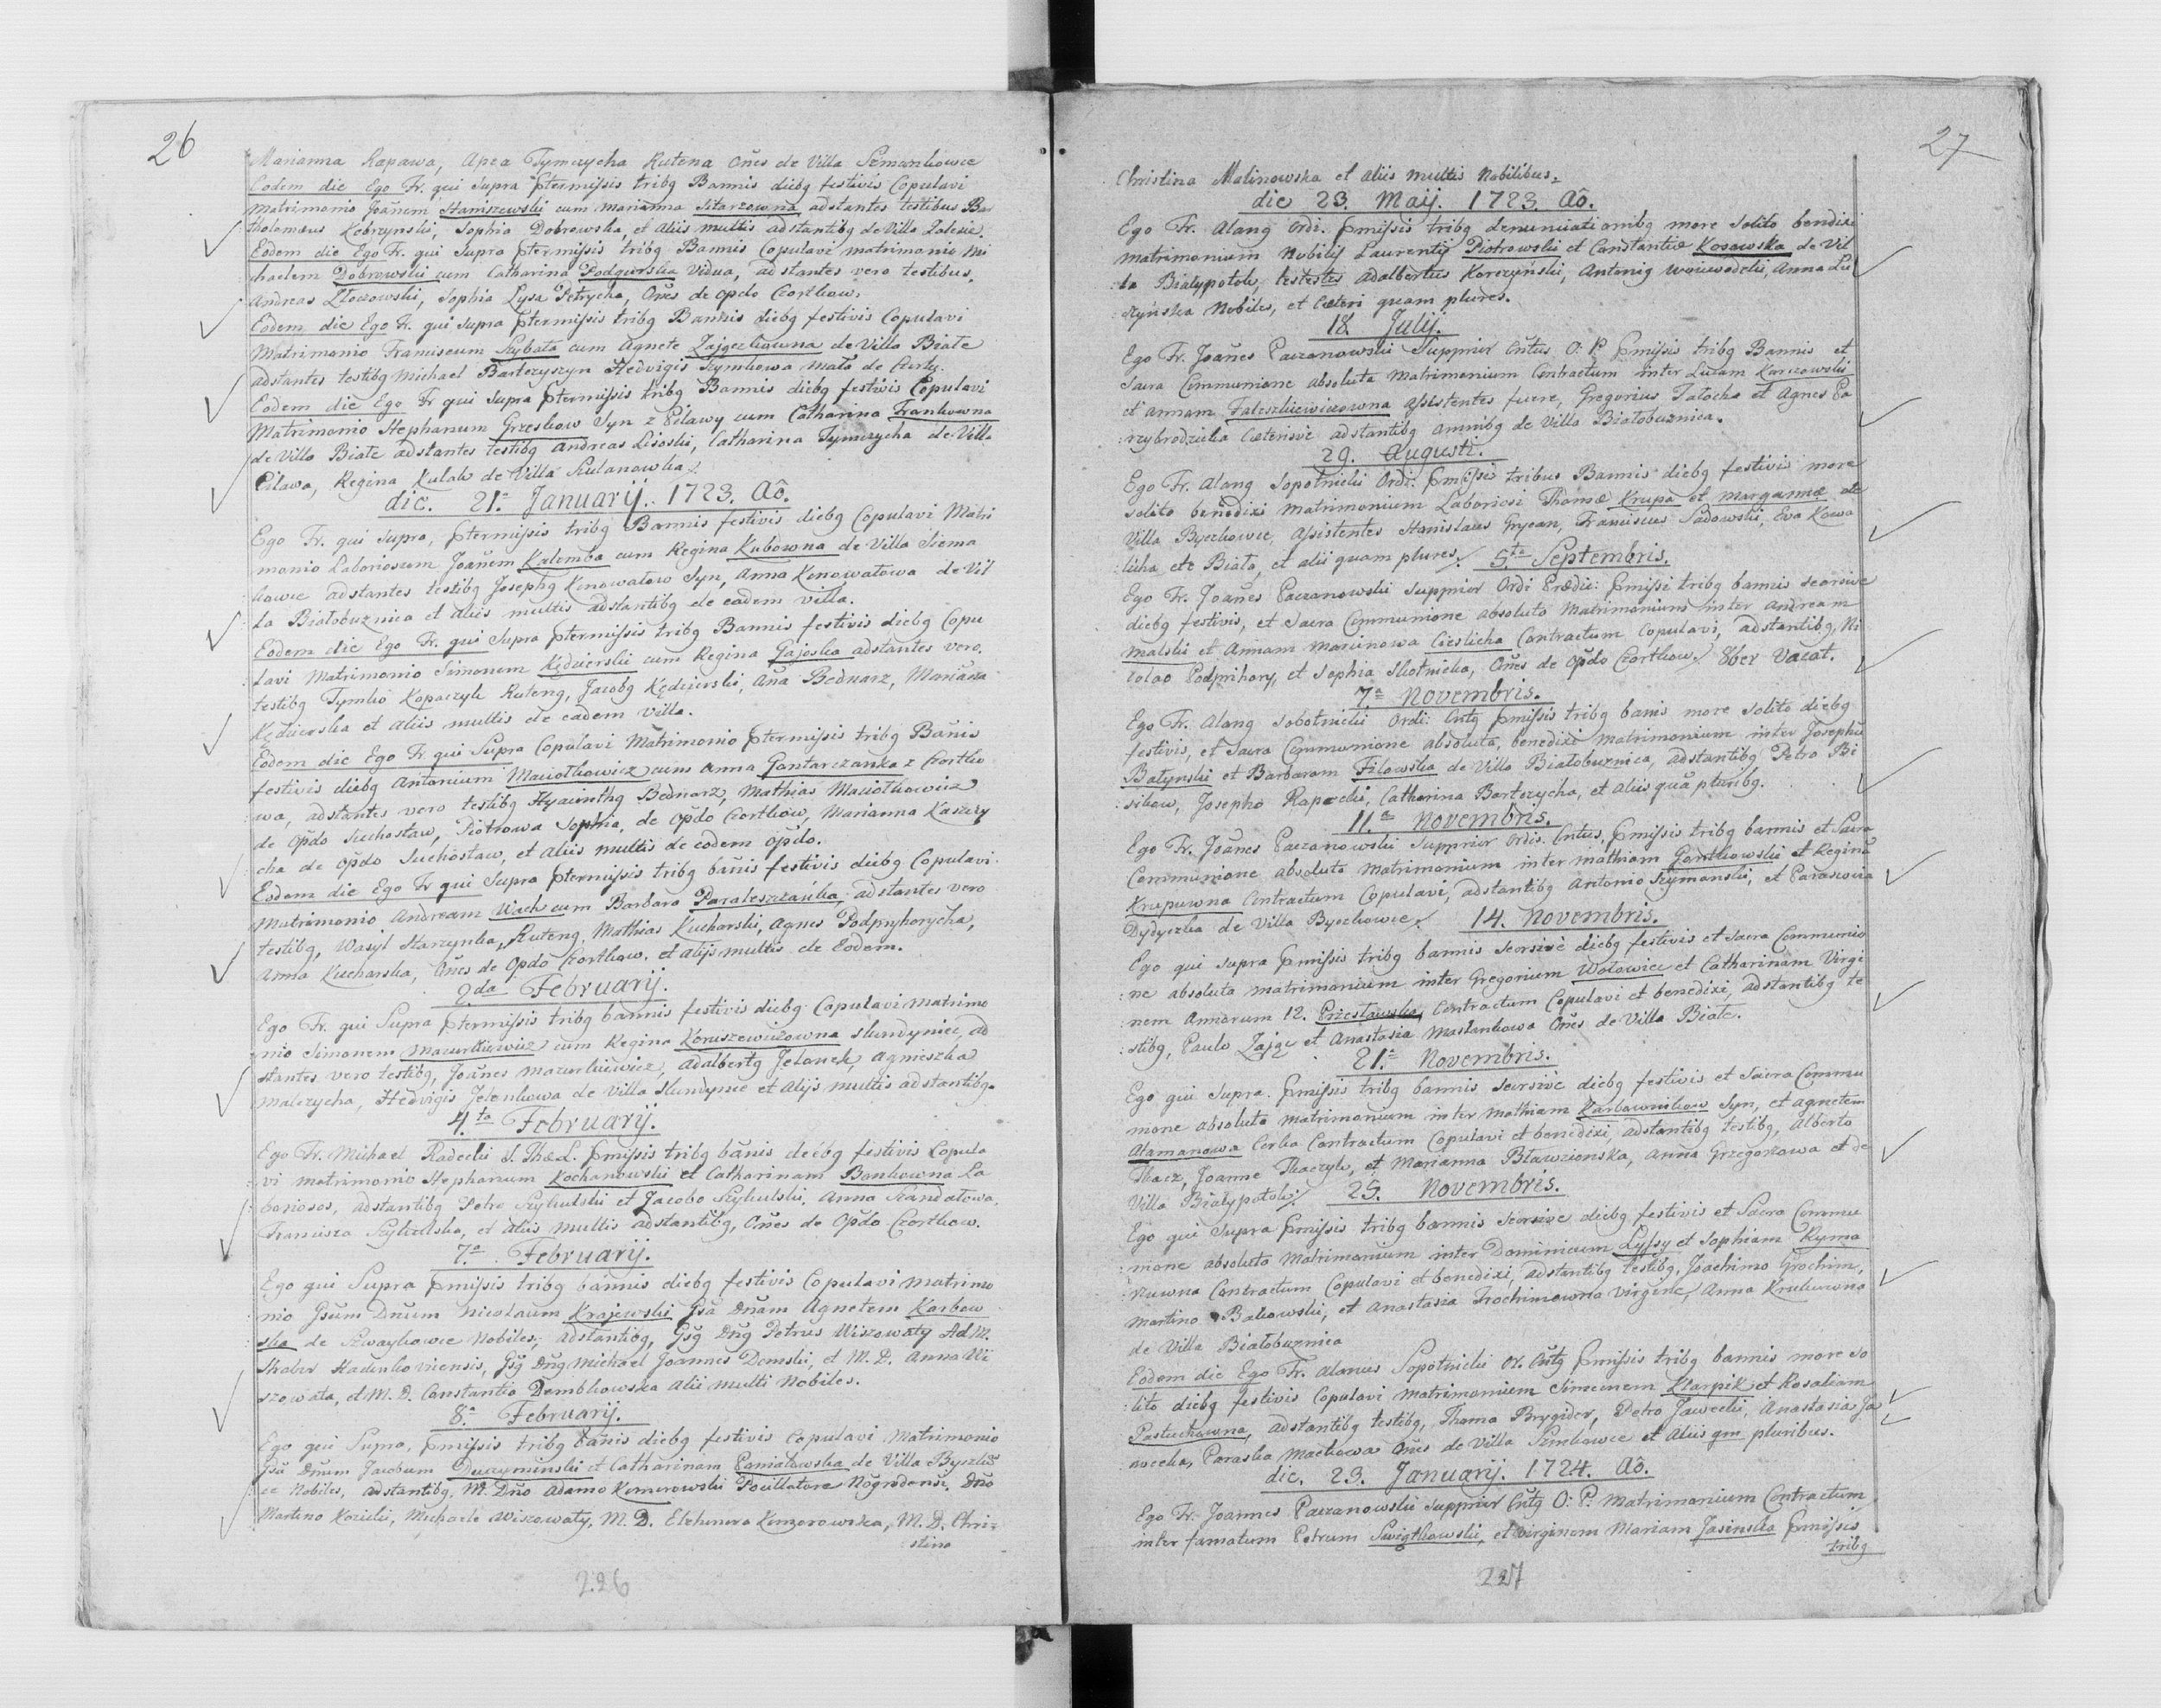 26
Marianna Rapawa, Apea Tymczycha Rutena Oñes de Villa Szmankowce
Eodem die Ego Fr. qui Supra ptermissis tribg Bannis diebg festivis Copulavi
Matrimonio Joañem Staniszewski cum Marianna Sitarzowna adstantes testibus Bar
tholomæus Kobrzynski, Sophia Dobrowska, et aliis multis adstantibg de Villa Zalesie.
Eodem die Ego Fr. qui Supra ptermissis tribg Bannis Copulavi matrimonio Mi
chaelem Dobrowski cum Catharina Podgurska Vidua, adstantes vero testibus.
Andreas Złoczowski, Sophia Lysa Petrycha, Oñes de opdo Czortkow.
Eodem die Ego Fr. qui Supra ptermissis tribg Bannis diebg festivis Copulavi
Matrimonio Franciscum Szybata cum Agnete Zajączkowna de Villa Białe
adstantes testibg Michael Bartczyszyn Hedvigis Szymkowa, de Czortk.
Eodem die Ego Fr qui Supra ptermissis tribg Bannis diebg festivis Copulavi
Matrimonio Stephanum Grzeskow Syn z Piławy cum Catharina Frankowna
de Villa Białe adstantes testibg Andreas Lisoski, Catharina Tymczycha de Villa
Piława, Regina Kulak de Villa Szulanowka.
die. 21.a Januarij. 1723. Aô.
Ego Fr. qui Supra, ptermissis tribg Bannis festivis diebg Copulavi Matri
monio Laboriosum Joañem Kalemba cum Regina Kubowna de Villa Siema
kowce adstantes testibg Josephg Konowatow Syn, Anna Konowatowa de Vil
la Białobuznica et aliis multis adstantibg de eadem villa.
Eodem die Ego Fr. qui Supra ptermissis tribg Bannis festivis diebg Copu
lavi Matrimonio Simonem Kędzierski cum Regina Gajoska adstantes vero.
testibg Tymko Kopaczyk Ruteng, Jacobg Kędzierski, Aña Bednarz, Mariaña
Kędzierska et aliis multis de eadem villa.
Eodem die Ego Fr qui Supra Copulavi Matrimonio ptermissis tribg Bañis
festivis diebg Antonium Maciołkowicz cum Anna Gontarczanka z Czortko
wa, adstantes vero testibg Hyacinthg Bednarz, Mathias Maciołkowicz
de Opdo Suchostaw, Piotrowa Sophia, de Opdo Czortkow, Marianna Kaszczy
cha de opdo Suchostaw, et aliis multis de eodem opdo.
Eodem die Ego Fr qui Supra ptermissis tribg bañis festivis diebg Copulavi
Matrimonio Andream Wach cum Barbara Paraleszczanka, adstantes vero
testibg, Wasyl Starzynka, Ruteng, Mathias Kucharski, Agnes Podpryhorycha,
Anna Kucharska, Oñes de Opdo Czortkow. et alijs multis de Eodem.
2.da Februarij.
Ego Fr. qui Supra ptermissis tribg bannis festivis diebg Copulavi matrimo
nio Simonem Mazurkiewicz cum Regina Koruszewiczowna Skundyniec, ad
stantes vero testibg, Joañes Mazurkiewicz, Adalbertg Jelonek, Agnieszka
Malczycha, Hedvigis Jelenkowa de Villa Skundynce et Alijs multis adstantibg.
4.ta Februarij.
Ego Fr. Michael Radecki S. Thæd. pmissis tribg bañis diebg festivis Copula
vi matrimonio Stephanum Kochanowski et Catharinam Bankowna La
boriosos, adstantibg Petro Szykulski et Jacobo Szykulski, Anna Szandatowa,
Francisca Szykulska, et aliis multis adstantibg, Oñes de Opdo Czortkow.
7.a Februarij.
Ego qui Supra pmissis tribg bannis diebg festivis Copulavi matrimo
nio Gsum Dnum Nicolaum Krajewski Gsā Dnam Agnetem Karbow
ska de Szwaykowce Nobiles, adstantibg, Gsg Dng Petrus Wiszowaty Ad M.
Skaber Hadenkovicensis, Gsg Dng Michael Joannes Domski, et M. D. Anna Wi
szowata, et M. D. Constantia Dembkowska Alii multi Nobiles.
8.a Februarij.
Ego qui Supra, pmissis tribg bañis diebg festivis Copulavi Matrimonio
Gsū Dnum Jacobum Duczyminski et Catharinam Poniatowska de Villa Byczko
ce Nobiles, adstantibg, M. Dno Adamo Komorowski Pocillatore Nogrodensi, Dno
Martino Kozicki, Michaele Wiszowaty, M. D. Elehnora Komorowska, M. D. Chri-
stina
226
27
Christina Malinowska et aliis multis Nobilibus.
die 23. Maij. 1723. Aô.
Ego Fr. Alang Ordi. pmissis tribg denunciationibg more Solito bendixi
matrimonium Nobilij Laurentij Piotrowski et Constantiæ Kosowska de Vil
la Białypotok, testestes Adalbertus Korczyński, Antonig Woiewodzki, Anna Lu
szyńska Nobiles, et Cæteri quam plures.
18. Julij.
Ego Fr. Joañes Paczanowski Supprior Cñtus O. P. pmissis tribg Bannis et
Sacra Communione absoluta Matrimonium Contractum inter Lucam Karczowski
et Annam Faleszkiewiczowna assistentes fuere, Gregorius Tatocha et Agnes Pa
rzybrodzicka Cæterisve adstantibg omnibg de Villa Białobuznica.
29. Augusti.
Ego Fr. Alang Sopotnicki Ordi. pmissis tribus Bannis diebg festivis more
solito benedixi matrimonium Laboriosi Thomæ Krupa et Mariannæ de
Villa Byczkowce, Assistentes Stanislaus Grycan, Franciscus Sadowski, Eva Kowa
licha ete Biała, et alii quam plures. 5.ta Septembris.
Ego Fr. Joañes Paczanowski Supprior Ordi Prædic: pmissi tribg bannis seorsive
diebg festivis, et Sacra Communione absoluta Matrimonium inter Andream
Malski et Annam Marcinowa Cieslicha Contractum Copulavi, adstantibg, Ni
colao Podprihory, et Sophia Słotnicka, Oñes de Opdo Czortkow. 8ber Vacat.
7.a Novembris.
Ego Fr. Alang Sobotnicki Ordi: Cntg pmissis tribg banis more Solito diebg
festivis, et Sacra Communione absoluta, benedixi Matrimonium inter Josephū
Batynski et Barbaram Filowska de Villa Białobuznica, adstantibg Petro Bi
sikow, Josepho Rapacki, Catharina Bartczycha, et aliis quā pluribg.
11.a Novembris.
Ego Fr. Joañes Paczanowski Supprior Ordis. Cntus, pmissis tribg bannis et Sacra
Communione absoluta Matrimonium inter Mathiam Gontkowski et Reginā
Krupuwna Contractum Copulavi, adstantibg Antonio Szymanski, et Paraswia
Dydyczka de Villa Byczkowce. 14. Novembris.
Ego qui Supra pmissis tribg bannis seorsivè diebg festivis et Sacra Communio
ne absoluta matrimonium inter Gregorium Wołowiec et Catharinam Virgi
nem Annorum 12. Przestawska, Contractum Copulavi et benedixi, adstantibg te
stibg, Paulo Zając et Anastasia Mastankowa Oñes de Villa Białe.
21.a Novembris.
Ego qui Supra. pmissis tribg bannis seorsivè diebg festivis et Sacra Commu
nione absoluta matrimonium inter Mathiam Karbownikow Syn, et Agnetem
Atamanowa Corka Contractum Copulavi et benedixi, adstantibg testibg, Alberto
Tkacz, Joanne Tkaczyk, et Marianna Bławzionska, Anna Grzegorzowa et de
Villa Białypotok. 25. Novembris.
Ego qui Supra pmissis tribg bannis seorsive diebg festivis et Sacra Commu
nione absoluta Matrimonium inter Dominicum Lyssy et Sophiam Ryma
ruwna Contractum Copulavi et benedixi, adstantibg testibg, Joachimo Grochim,
Martino Bakowski, et Anastasia Trochimowna Virgine, Anna Krukowna
de Villa Białobuznica
Eodem die Ego Fr. Alanus Sopotnicki Or. Cntg pmissis tribg bannis more so
lito diebg festivis Copulavi Matrimonium Simeonem Skarpik et Rosaliam
Pastuchowna, adstantibg testibg, Thoma Brygider, Petro Jawecki, Anastasia Ja
nocka, Paraska Mackowa Oñes de Villa Szmkowce et Aliis qm pluribus.
die. 23. Januarij. 1724. Aô.
Ego Fr. Joannes Paczanowski Supprior Cntg O: P: Matrimonium Contractum
inter famatum Petrum Swigtkowski, et Virginem Mariam Jasinska pmissis
tribg
227